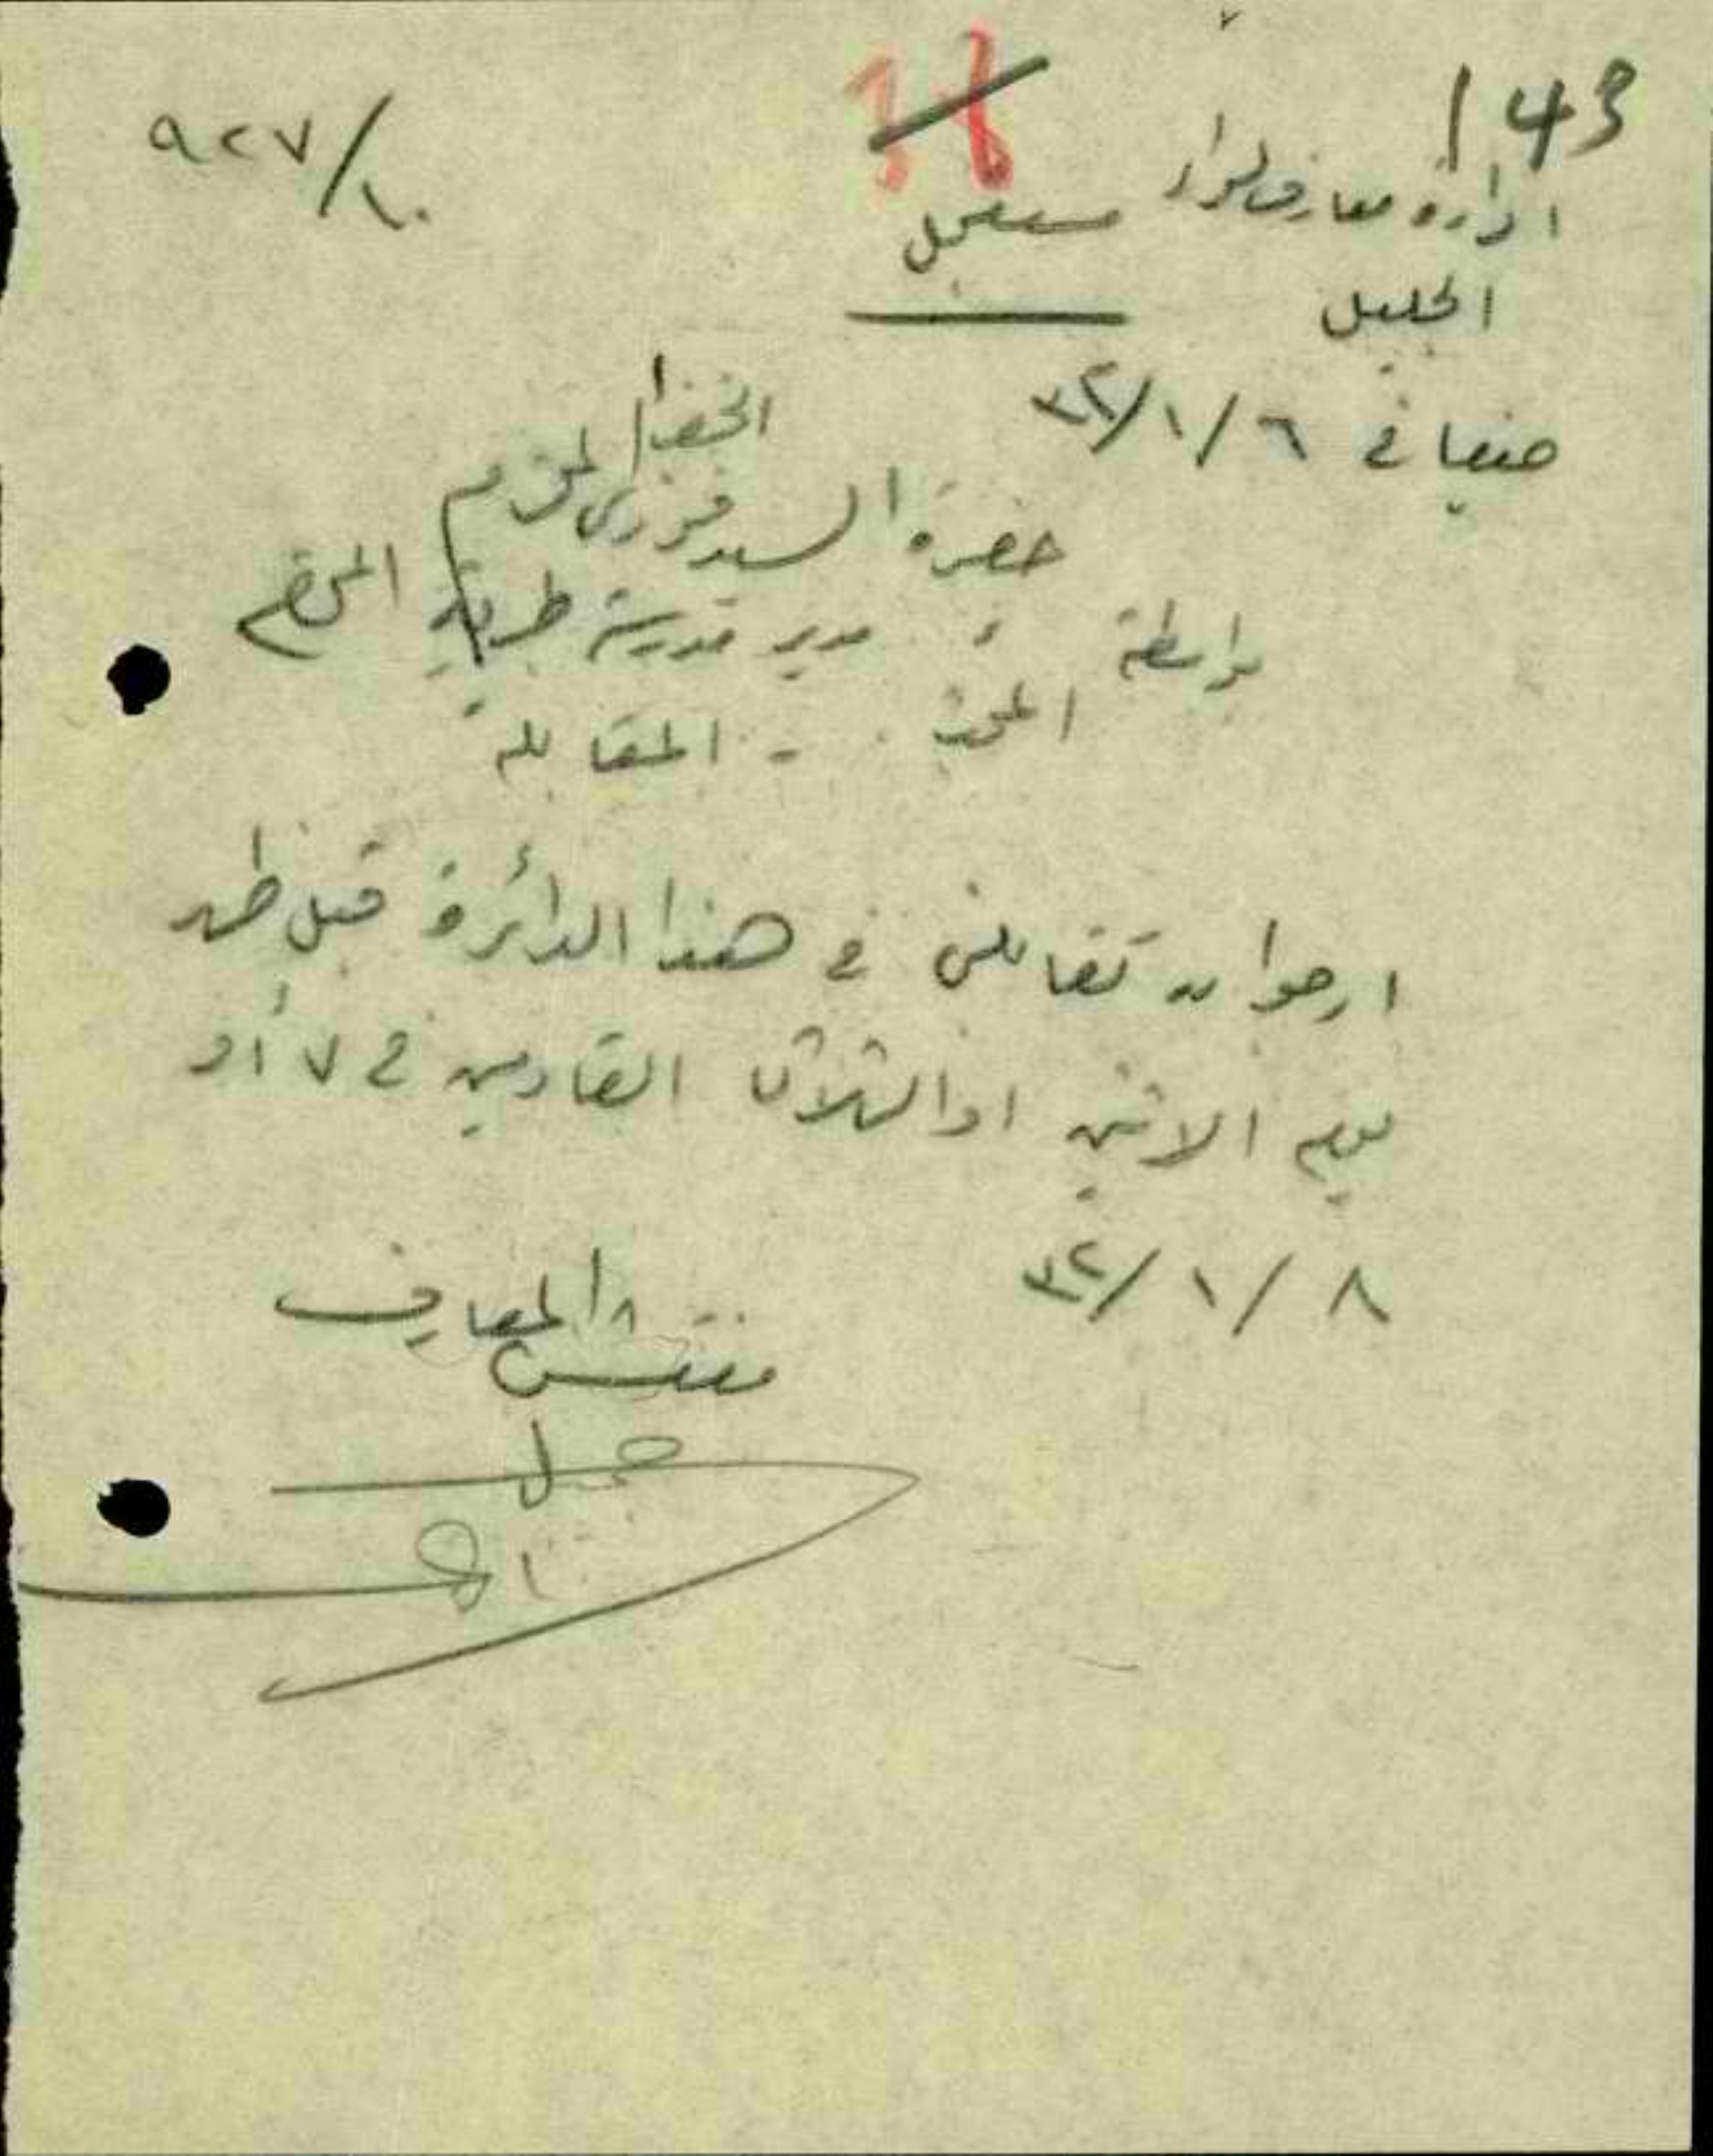 143
٩٢٧/١٠
ادارة معارف لواء
مستعجل
الجليل
في ٣٢/١/٦
حضرة السيد فوزي الخضرا المحترم
بواسطة مدير مدرسة طبريا المحترم
المبحث - المقابلة
ارجو ان تقابلني في هذا الدائرة قبل ظهر
يوم الاثنين او الثلاثا القادمين في ٧ أو
٣٢/١/٨
مفتش المعارف